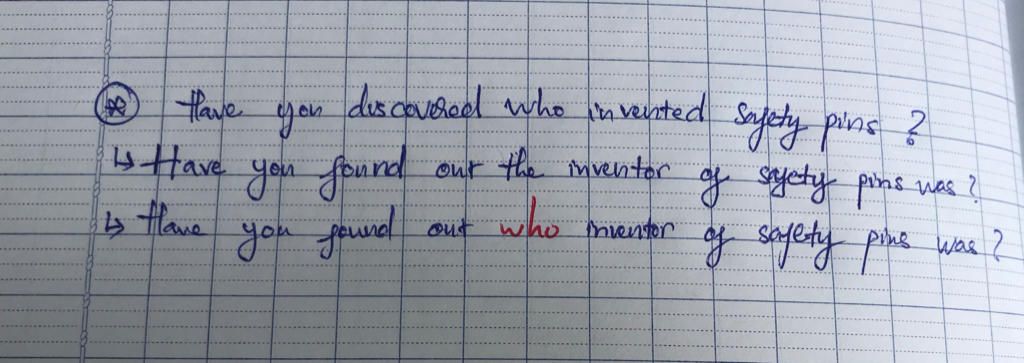 Have you discovered who invented safety pins ?
↳ Have you found out the inventor of safety pins was ?
↳ Have you found out who inventor of safety pins was ?